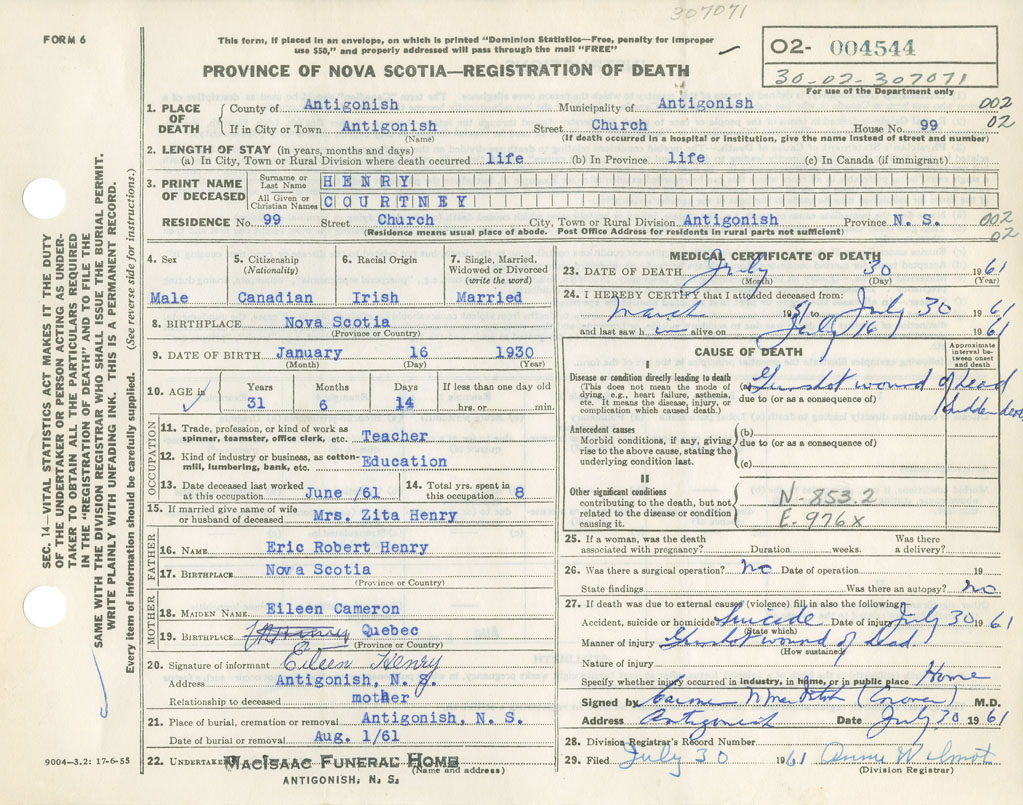 307071
FORM 6
This form, if placed in an envelope, on which is printed "Dominion Statistics—Free, penalty for improper
use $50," and properly addressed will pass through the mail "FREE"
02- 004544
30-02-307071
For use of the Department only
PROVINCE OF NOVA SCOTIA—REGISTRATION OF DEATH
1. PLACE OF DEATH County of Antigonish Municipality of Antigonish 002
If in City or Town Antigonish Street Church House No. 99 02
(Name) (If death occurred in a hospital or institution, give the name instead of street and number)
2. LENGTH OF STAY (in years, months and days)
(a) In City, Town or Rural Division where death occurred life (b) In Province life (c) In Canada (if immigrant)
3. PRINT NAME OF DECEASED Surname or Last Name HENRY
All Given or Christian Names COURTNEY
RESIDENCE No. 99 Street Church City, Town or Rural Division Antigonish Province N. S. 002
(Residence means usual place of abode. Post Office Address for residents in rural parts not sufficient) 02
4. Sex Male
5. Citizenship (Nationality) Canadian
6. Racial Origin Irish
7. Single, Married, Widowed or Divorced (write the word) Married
8. BIRTHPLACE Nova Scotia
(Province or Country)
9. DATE OF BIRTH January 16 1930
(Month) (Day) (Year)
10. AGE in Years Months Days If less than one day old
31 6 14 hrs. or min.
OCCUPATION
11. Trade, profession, or kind of work as
spinner, teamster, office clerk, etc. Teacher
12. Kind of industry or business, as cotton
mill, lumbering, bank, etc. Education
13. Date deceased last worked
at this occupation June /61
14. Total yrs. spent in
this occupation 8
15. If married give name of wife
or husband of deceased Mrs. Zita Henry
FATHER
16. NAME Eric Robert Henry
17. BIRTHPLACE Nova Scotia
(Province or Country)
MOTHER
18. MAIDEN NAME Eileen Cameron
19. BIRTHPLACE Quebec
(Province or Country)
20. Signature of informant Eileen Henry
Address Antigonish, N. S.
Relationship to deceased mother
21. Place of burial, cremation or removal Antigonish, N. S.
Date of burial or removal Aug. 1/61
22. UNDERTAKER MACISAAC FUNERAL HOME
(Name and address)
ANTIGONISH, N. S.
MEDICAL CERTIFICATE OF DEATH
23. DATE OF DEATH July 30 1961
(Month) (Day) (Year)
24. I HEREBY CERTIFY that I attended deceased from:
March 1951 to July 30 1961
and last saw him alive on July 16 1961
CAUSE OF DEATH
Approximate interval between onset and death
I
Disease or condition directly leading to death
(This does not mean the mode of
dying, e.g., heart failure, asthenia,
etc. It means the disease, injury, or
complication which caused death.)
(a) Gunshot wound of head
due to (or as a consequence of)
Sudden death
Antecedent causes
Morbid conditions, if any, giving
rise to the above cause, stating the
underlying condition last.
(b)
due to (or as a consequence of)
(c)
II
Other significant conditions
contributing to the death, but not
related to the disease or condition
causing it.
N-853.2
E-976x
25. If a woman, was the death Was there
associated with pregnancy? Duration weeks. a delivery?
26. Was there a surgical operation? No Date of operation 19
State findings Was there an autopsy? No
27. If death was due to external causes (violence) fill in also the following:
Accident, suicide or homicide? Suicide Date of injury July 30 1961
(State which)
Manner of injury Gunshot wound of head.
(How sustained)
Nature of injury
Specify whether injury occurred in industry, in home, or in public place Home
Signed by (Coroner) M.D.
Address Antigonish Date July 30 1961
28. Division Registrar's Record Number
29. Filed July 30 1961 Anne Wilmot
(Division Registrar)
SEC. 14—VITAL STATISTICS ACT MAKES IT THE DUTY
OF THE UNDERTAKER OR PERSON ACTING AS UNDER-
TAKER TO OBTAIN ALL THE PARTICULARS REQUIRED
IN THE "REGISTRATION OF DEATH" AND TO FILE THE
SAME WITH THE DIVISION REGISTRAR WHO SHALL ISSUE THE BURIAL PERMIT.
WRITE PLAINLY WITH UNFADING INK. THIS IS A PERMANENT RECORD.
Every item of information should be carefully supplied. (See reverse side for instructions.)
9004—3.2: 17-6-55